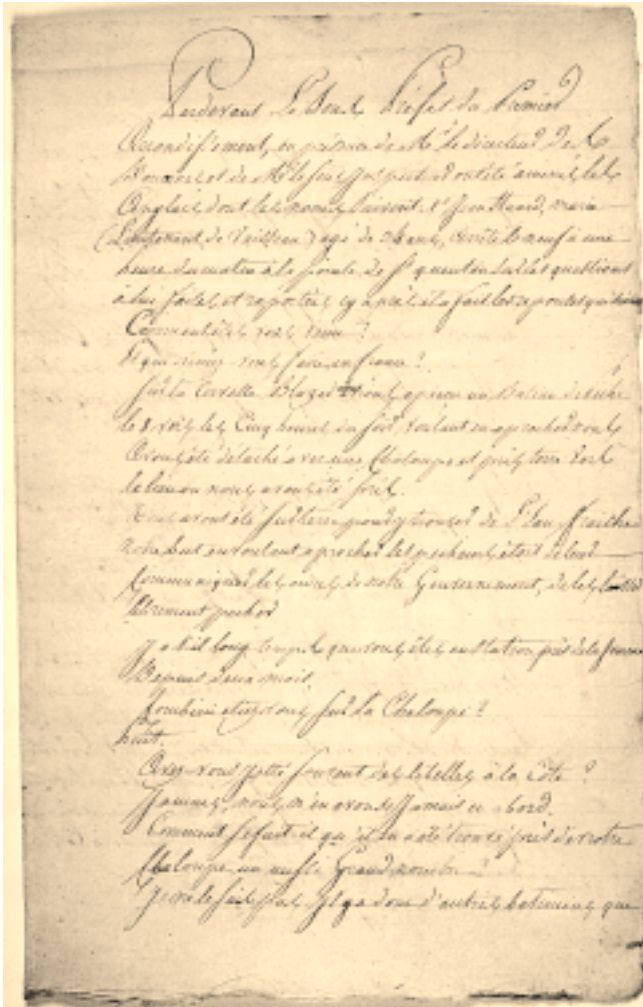 Pardevant Le Sous Préfet du Premier
Arrondissement, en présence de Mr le directeur de
Douanes et de Mr le Sous Inspecteur ont été amenés les
Anglais dont les noms suivent. 1° Jean
Lieutenant de Vaisseau agé de ans, arrêté le neuf à une
heure du matin à la pointe de St quentin Sur les questions
à lui faites et raportées cy après il a fait les reponses qui
Comment êtes vous venu ?
Et que veniez vous faire en france ?
Sur la Corvette Blazer avons aperçu un Bateau
le 8 vers les Cinq heures du soir, voulant en aprocher nous
Avons été détaché avec une Chaloupe et près terre
le lieu ou nous avons été pris.
Nous avons été Sur terre pour y trouver de l'Eau fraiche
notre but en voulant aprocher les pecheurs étoit de leur
Communiquer les ordres de notre Gouvernement, de les laisser
librement pecher
y a t'il long temps que vous êtes en station près de la Somme
Depuis deux mois.
Combien etiez vous Sur la Chaloupe ?
huit.
Avez-vous jetté souvent des libelles à la Côte ?
Jamais, nous n'en avons Jamais eu abord.
Comment se fait-il qu'il en a été trouvé près de votre
Chaloupe un aussi Grand nombre ?
Je ne le sais pas, Il y a donc d'autres batimens que